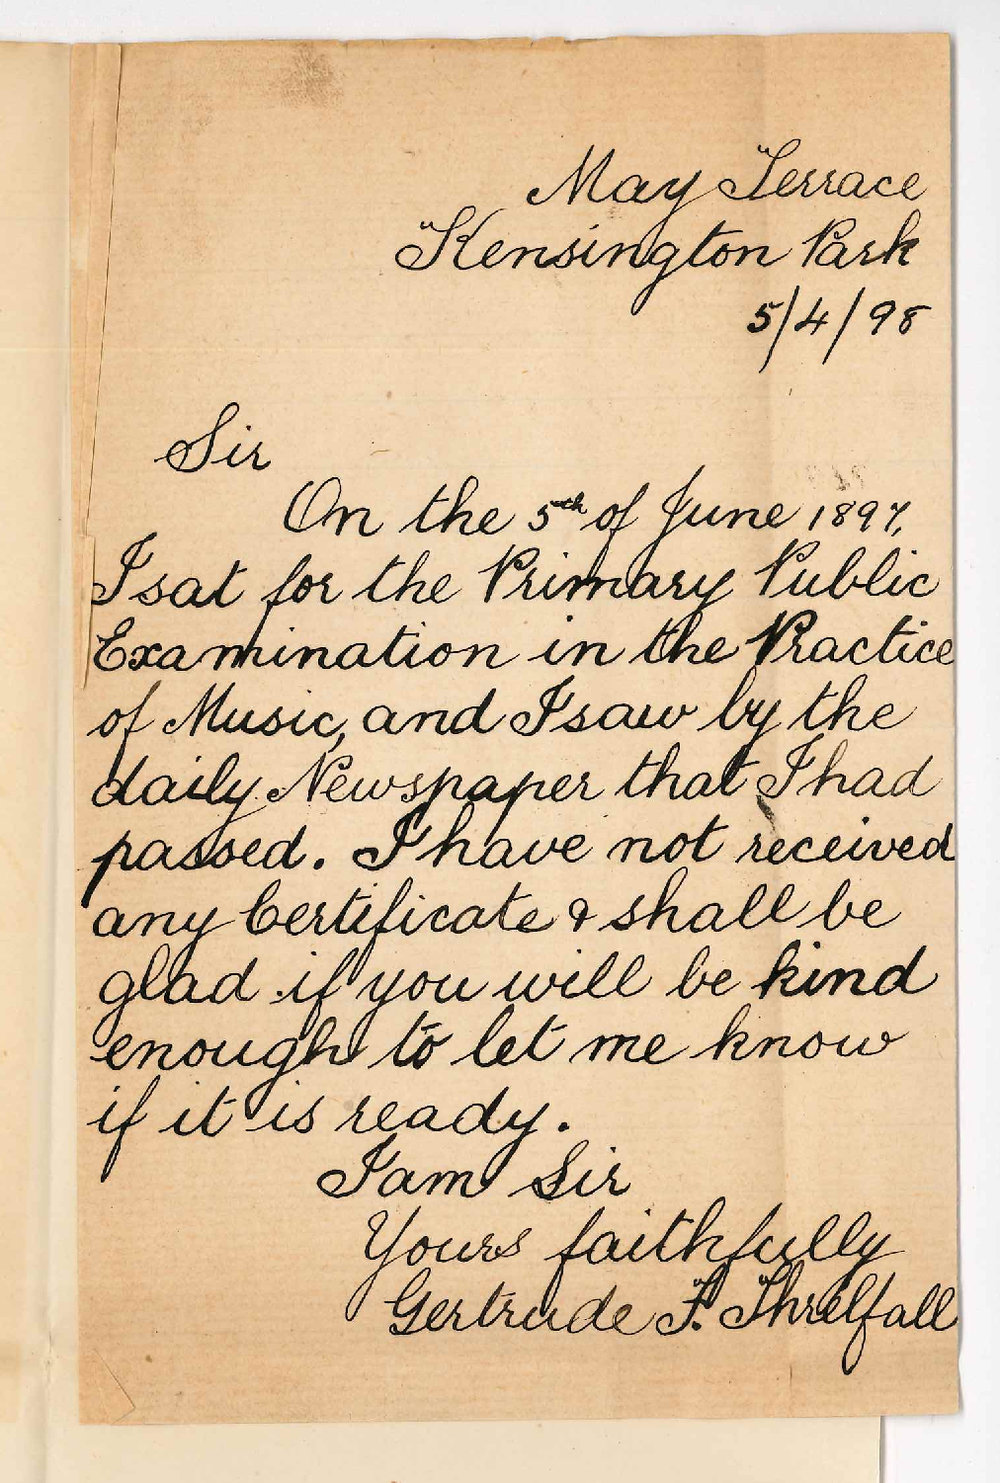 May Terrace
Kensington Park
5/4/98
Sir
On the 5th of June 1897,
I sat for the Primary Public
Examination in the Practice
of Music, and I saw by the
daily Newspaper that I had
passed. I have not received
any Certificate & shall be
glad if you will be kind
enough to let me know
if it is ready.
I am Sir
Yours faithfully
Gertrude F. Threlfall